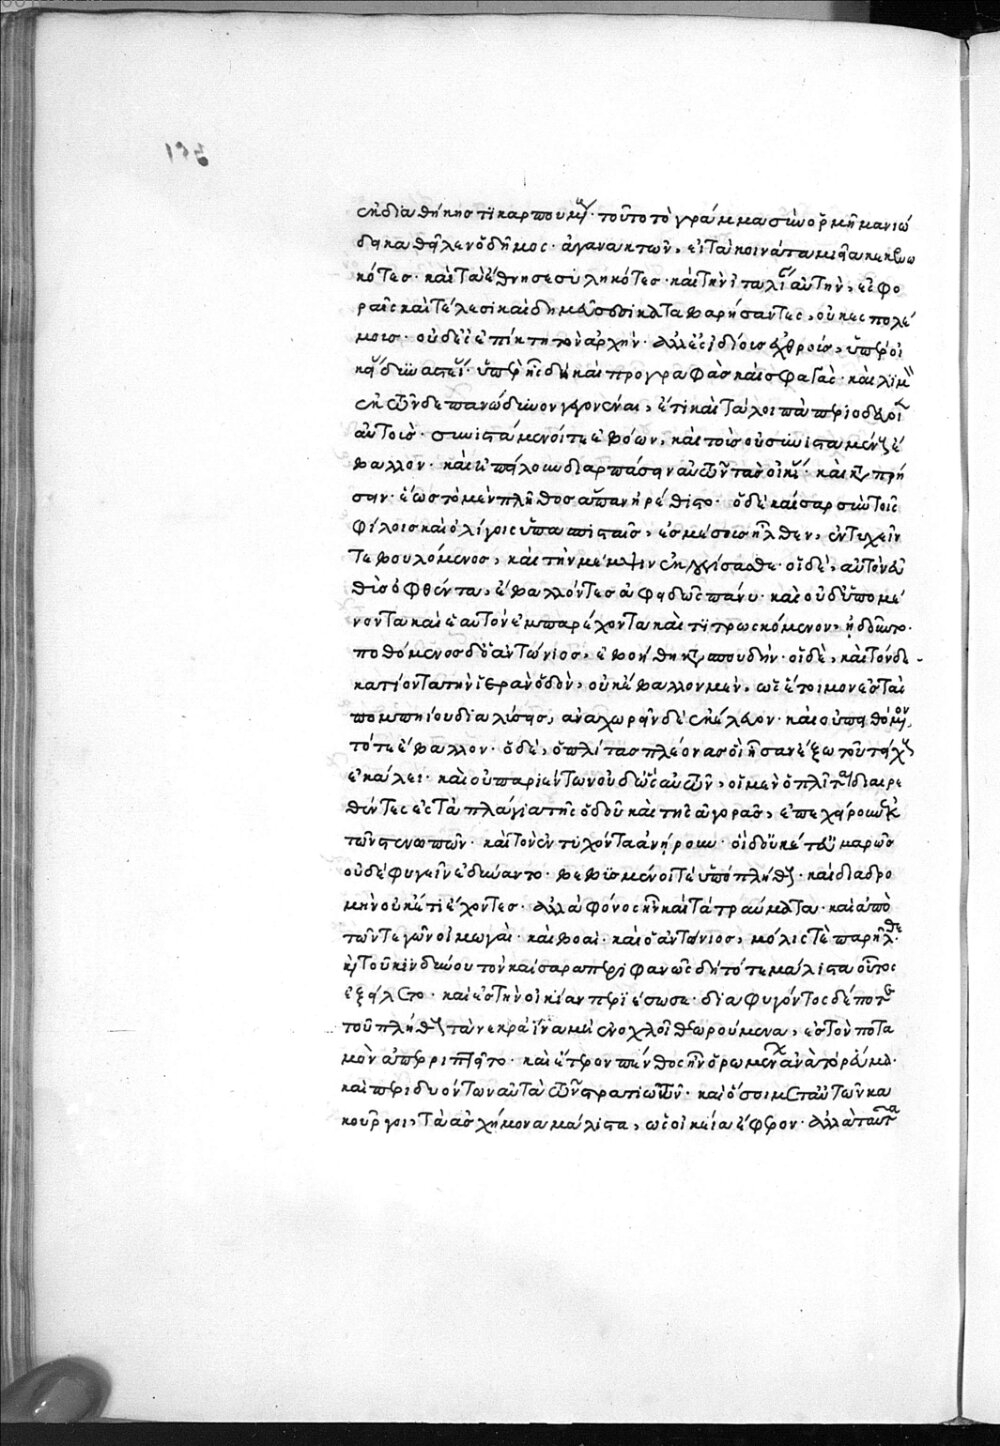 ἐκ διαθήκης τι καρπουμένους. τοῦτο τὸ γράμμα σὺν ὁρμῇ μανιώ
δει καθεῖλεν ὁ δῆμος. ἀγανακτῶν, εἰ τὰ κοινὰ ταμιεῖα κεκενω
κότες. καὶ τὰ ἔθνη σεσυληκότες. καὶ τὴν ἰταλίαν αὐτὴν, ἐσφο
ραῖς καὶ τέλεσι καὶ δημεύσεσι καταβαρήσαντες, οὐκ ἐς πολέ
μους. οὐδὲ ἐς ἐπίκτητον ἀρχὴν. ἀλλ' ἐς ἰδίους ἐχθροὺς, ὑπὲρ οἰ
κείας δυναστείας. ὑπὲρ ἧς δὴ καὶ προγραφὰς καὶ σφαγὰς. καὶ λιμὸν
ἐκ τῶνδε πανώδυνον γεγονέναι, ἔτι καὶ τὰ λοιπὰ περιοδύοιεν
αὐτοὺς. συνιστάμενοί τε ἐβόων, καὶ τοὺς οὐ συνισταμένους ἔ
βαλλον. καὶ ἠπείλουν διαρπάσειν αὐτῶν τὰς οἰκίας. καὶ καταπρή
σειν. ἕως τὸ μὲν πλῆθος ἅπαν ἠρέθιστο. ὁ δὲ καῖσαρ σὺν τοῖς
φίλοις καὶ ὀλίγοις ὑπασπισταῖς, ἐς μέσους ἦλθεν, ἐντυχεῖν
τε βουλόμενος, καὶ τὴν μέμψιν ἐκλογίσασθαι. οἱ δὲ, αὐτὸν εὐ
θὺς ὀφθέντα, ἔβαλλόν τε ἀφειδῶς πάνυ. καὶ οὐδ' ὑπομέ
νοντα καὶ ἑαυτὸν ἐμπαρέχοντα καὶ τιτρωσκόμενον, ᾐδοῦντο.
πυθόμενος δ' ὁ ἀντώνιος, ἐβοήθει κατὰ σπουδήν. οἱ δὲ, καὶ τόνδε
κατιόντα τὴν ἱερὰν ὁδὸν, οὐκ ἔβαλλον μὲν, ὡς ἕτοιμον ἐς τὰς
πομπηίου διαλύσεις, ἀναχωρεῖν δὲ ἐκέλευον. καὶ οὐ πειθόμενον,
τότε ἔβαλλον. ὁ δὲ, ὁπλίτας πλέονας οἳ ἦσαν ἔξω τοῦ τείχους
ἐκάλει. καὶ οὐ παριέντων οὐδ' ὣς αὐτῶν, οἱ μὲν ὁπλῖται διαιρε
θέντες ἐς τὰ πλάγια τῆς ὁδοῦ καὶ τῆς ἀγορᾶς, ἐπεχείρουν ἐκ
τῶν στενωπῶν. καὶ τὸν ἐντυχόντα ἀνῄρουν. οἱ δ' οὐκέτι εὐμαρῶς
οὐδὲ φυγεῖν ἐδύναντο. βεβυσμένοι τε ὑπὸ πλήθους. καὶ διαδρο
μὴν οὐκέτι ἔχοντες. ἀλλὰ φόνος ἦν καὶ τὰ τραύματα. καὶ ἀπὸ
τῶν τεγῶν οἰμωγαὶ. καὶ βοαὶ. καὶ ὁ ἀντώνιος, μόλις τε παρῆλθε.
καὶ τοῦ κινδύνου τὸν καίσαρα περιφανῶς δὴ τότε μάλιστα οὗτος
ἐξείλετο. καὶ ἐς τὴν οἰκίαν περιέσωσε. διαφυγόντος δέ ποτε
τοῦ πλήθους τὰ νεκρὰ ἵνα μὴ ἐνοχλοῖ θεωρούμενα, ἐς τὸν ποτα
μὸν ἀπερριπτεῖτο. καὶ ἕτερον πένθος ἦν ὁρωμένων ἀνὰ τὸ ῥεῦμα.
καὶ περιδυόντων αὐτὰ τῶν στρατιωτῶν. καὶ ὅσοι μετ' αὐτῶν κα
κοῦργοι, τὰ εὐσχήμονα μάλιστα, ὡς οἰκεῖα ἔφερον. ἀλλὰ ταῦτα